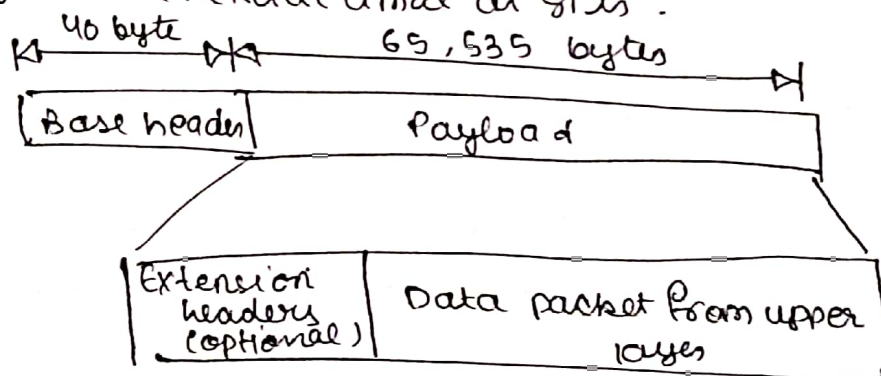 40 byte 65,535 bytes
Base header Payload
Extension
headers Data packet from upper
(optional) layer